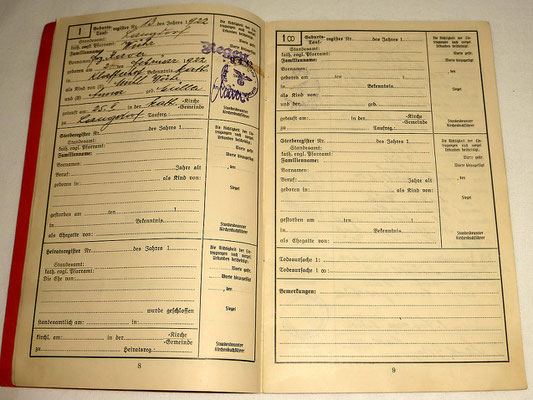 1
Geburts- Tauf- register Nr. 13 des Jahres 1922
Standesamt: Langdorf
kath. evgl. Pfarramt:
Familienname:
Vornamen:
geboren am Februar 1922
in Bekenntnis kath.
als Kind von:
und (der) Anna geb.
getauft am 25.2. in der kath. -Kirche -Gemeinde
zu Langdorf Taufreg.:
Die Richtigkeit der Ein-
Sterberegister Nr. des Jahres 1
Standesamt:
kath. evgl. Pfarramt:
Familienname:
Vornamen:
Beruf: Jahre alt
geboren in: als Kind von:
gestorben am ten 1
in Bekenntnis.
als Ehegatte von:
Die Richtigkeit der Ein-
tragungen nach vorgel.
Urkunden bescheinigt.
Worte gestr.
Worte hinzugefügt
, den
Siegel
Standesbeamter
Kirchenbuchführer
Heiratsregister Nr. des Jahres 1
Standesamt:
kath. evgl. Pfarramt:
Die Ehe von:
wurde geschlossen
standesamtlich am: in
kirchl. am: in der -Kirche -Gemeinde
zu Heiratsreg.:
Die Richtigkeit der Ein-
tragungen nach vorgel.
Urkunden bescheinigt.
Worte gestr.
Worte hinzugefügt
, den
Siegel
Standesbeamter
Kirchenbuchführer
8
1 ∞
Geburts- Tauf- register Nr. des Jahres 1
Standesamt:
kath. evgl. Pfarramt:
Familienname:
Vornamen:
geboren am
in Bekenntnis
als Kind von:
und der geb.
getauft am in der -Kirche -Gemeinde
zu Taufreg.:
Die Richtigkeit der Ein-
tragungen nach vorgel.
Urkunden bescheinigt.
Worte gestr.
Worte hinzugefügt
, den
Siegel
Standesbeamter
Kirchenbuchführer
Sterberegister Nr. des Jahres 1
Standesamt:
kath. evgl. Pfarramt:
Familienname:
Vornamen:
Beruf: Jahre alt
geboren in: als Kind von:
gestorben am ten 1
in Bekenntnis.
als Ehegatte von:
Die Richtigkeit der Ein-
tragungen nach vorgel.
Urkunden bescheinigt.
Worte gestr.
Worte hinzugefügt
, den
Siegel
Standesbeamter
Kirchenbuchführer
Todesursache 1:
Todesursache 1 ∞:
Bemerkungen:
9